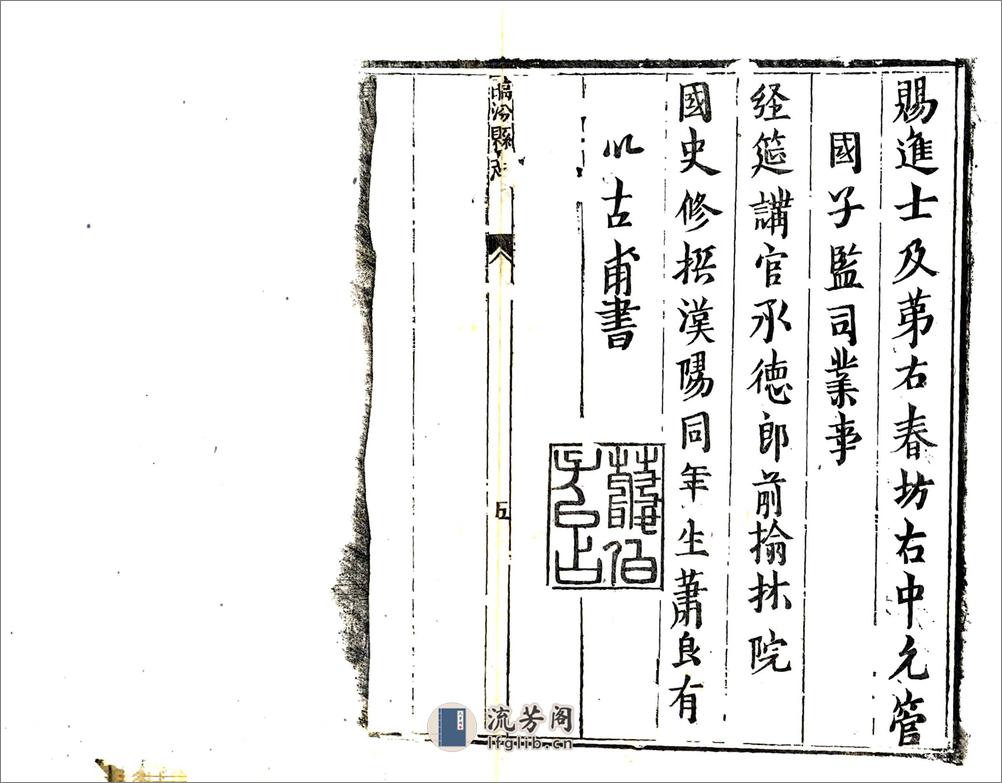 賜進士及苐右春坊右中允管
國子監司業事
経筵講官承徳郎前翰林院
國史修撰漢陽同年生蕭良有
以古甫書
臨汾縣志
五
流芳阁
lfglib.cn